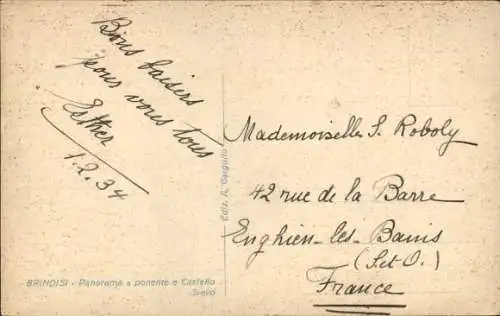 Bons baisers
pour vous tous
Esther
1.2.34
Mademoiselle S. Roboly
42 rue de la Barre
Enghien-les-Bains
(S. et O.)
France
Ediz. A. Carguilo
BRINDISI - Panorama a ponente e Castello
Svevo